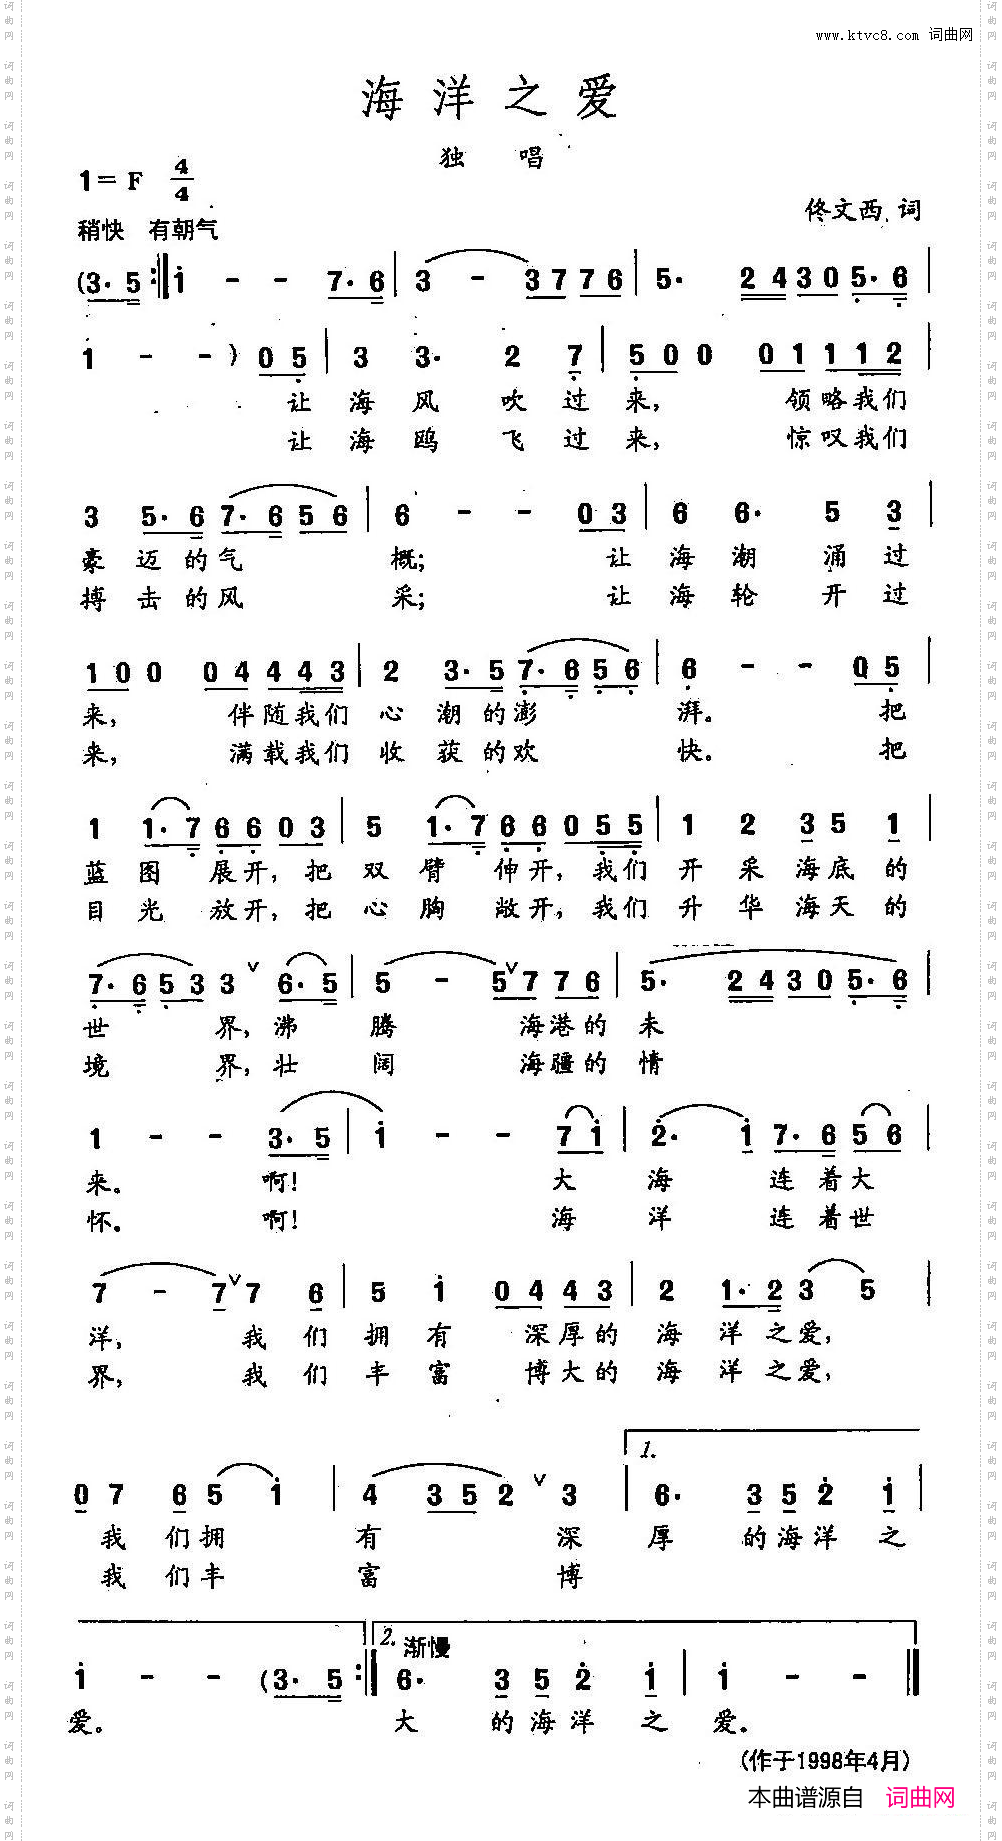 www.ktvc8.com 词曲网
海洋之爱
独 唱
1=F 4/4
佟文西 词
稍快 有朝气
(3·5:‖i - - 7·6 | 3 - 3776 | 5· 2430 5·6 |
1 - -) 05 | 3 3· 2 7 | 500 01112 |
让 海 风 吹 过 来, 领略我们
让 海 鸥 飞 过 来, 惊叹我们
3 5·6 7·656 | 6 - - 03 | 6 6· 5 3 |
豪 迈 的 气 概; 让 海 潮 涌 过
搏 击 的 风 采; 让 海 轮 开 过
100 04443 | 2 3·5 7·656 | 6 - - 05 |
来, 伴随我们 心 潮 的 澎 湃。 把
来, 满载我们 收 获 的 欢 快。 把
1 1·7 6603 | 5 1·7 66055 | 1 2 35 1 |
蓝 图 展开, 把 双 臂 伸开, 我们 开 采 海底 的
目 光 放开, 把 心 胸 敞开, 我们 升 华 海天 的
7·653 3 ∨ 6·5 | 5 - 5∨7 76 | 5· 2430 5·6 |
世 界, 沸 腾 海港的 未
境 界, 壮 阔 海疆的 情
1 - - 3·5 | i - - 7i | 2· i 7·6 56 |
来。 啊! 大 海 连 着 大
怀。 啊! 海 洋 连 着 世
7 - 7∨7 6 | 5 i 0443 | 2 1·2 3 5 |
洋, 我 们 拥 有 深厚的 海 洋 之爱,
界, 我 们 丰 富 博大的 海 洋 之爱,
1.
0 7 6 5 i | 4 352 ∨ 3 | 6· 3 5 2 i |
我 们 拥 有 深 厚 的 海 洋 之
我 们 丰 富 博
2. 渐慢
i - - (3·5 :‖ 6· 3 5 2 i | i - - ‖
爱。 大 的 海 洋 之 爱。
(作于1998年4月)
本曲谱源自 词曲网